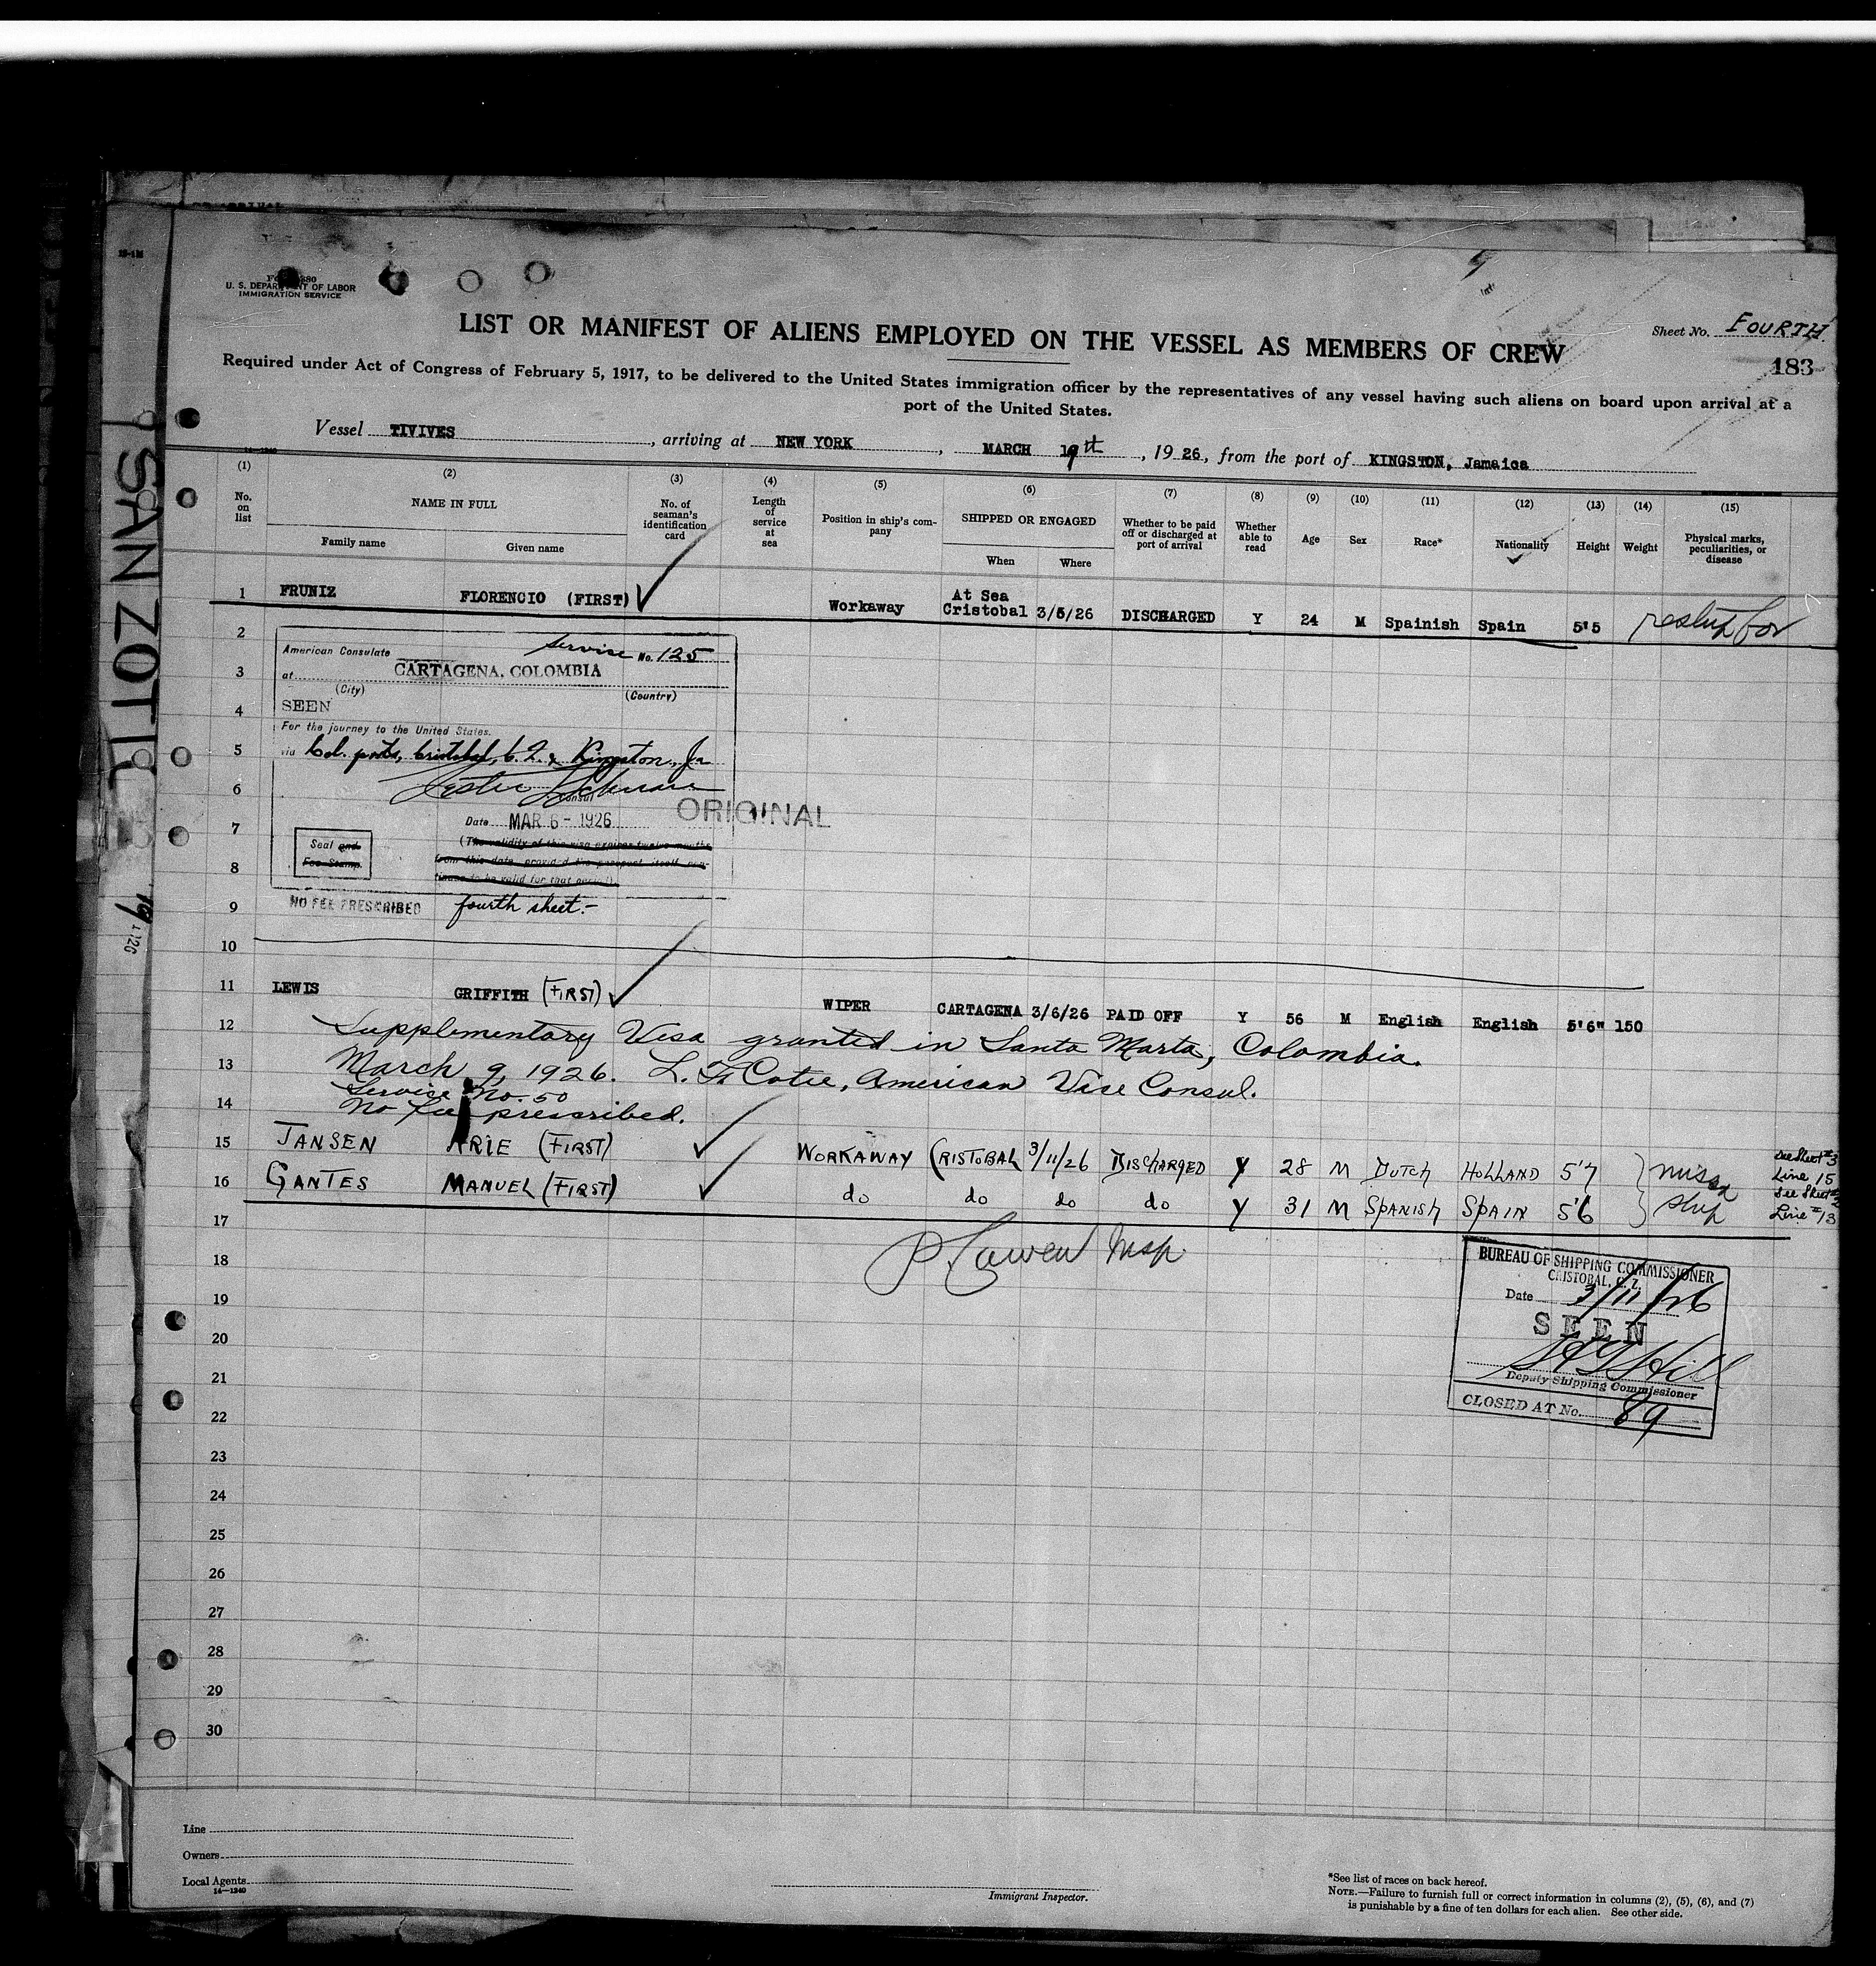 U. S. DEPARTMENT OF LABOR
IMMIGRATION SERVICE
LIST OR MANIFEST OF ALIENS EMPLOYED ON THE VESSEL AS MEMBERS OF CREW
Sheet No. FOURTH
183
Required under Act of Congress of February 5, 1917, to be delivered to the United States immigration officer by the representatives of any vessel having such aliens on board upon arrival at a
port of the United States.
Vessel TIVIVES, arriving at NEW YORK, MARCH 19th, 1926, from the port of KINGSTON, Jamaica
(1) (2) (3) (4) (5) (6) (7) (8) (9) (10) (11) (12) (13) (14) (15)
No. on list
NAME IN FULL
Family name Given name
No. of seaman's identification card
Length of service at sea
Position in ship's company
SHIPPED OR ENGAGED
When Where
Whether to be paid off or discharged at port of arrival
Whether able to read
Age
Sex
Race*
Nationality
Height
Weight
Physical marks, peculiarities, or disease
1 FRUNIZ FLORENCIO (FIRST) Workaway At Sea Cristobal 3/5/26 DISCHARGED Y 24 M Spainish Spain 5'5
2
American Consulate Service No. 125
3
at CARTAGENA, COLOMBIA
(City) (Country)
4
SEEN
For the journey to the United States.
5
via Col. ports, Cristobal, C.Z. & Kingston, Ja
6
Consul
ORIGINAL
7
Date MAR 6 - 1926
Seal and
Fee Stamp
(The validity of this visa expires twelve months
8
from this date, provided the passport itself con-
tinues to be valid for that period)
9
NO FEE PRESCRIBED fourth sheet.-
10
11 LEWIS GRIFFITH (FIRST) WIPER CARTAGENA 3/6/26 PAID OFF Y 56 M English English 5'6" 150
12 Supplementary Visa granted in Santa Marta, Colombia.
13 March 9, 1926. American Vice Consul.
Service No. 50
14 No fee prescribed.
15 JANSEN ARIE (FIRST) WORKAWAY CRISTOBAL 3/11/26 DISCHARGED Y 28 M DUTCH HOLLAND 5'7 missed See Sheet #3 Line 15
16 GANTES MANUEL (FIRST) do do do do Y 31 M SPANISH SPAIN 5'6 ship See Sheet Line #13
17
18
BUREAU OF SHIPPING COMMISSIONER
CRISTOBAL, C. Z.
Date 3/11/26
19
SEEN
20
21
Deputy Shipping Commissioner
CLOSED AT No. 89
22
23
24
25
26
27
28
29
30
Line
Owners
Local Agents
14—1240
Immigrant Inspector.
*See list of races on back hereof.
NOTE.—Failure to furnish full or correct information in columns (2), (5), (6), and (7)
is punishable by a fine of ten dollars for each alien. See other side.